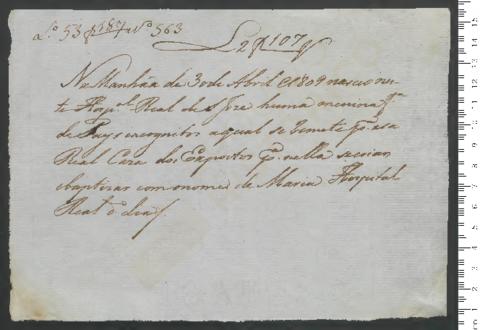 Lº 53 f 187 v Nº 563
L 2 f 107 v
Na Manhãa de 30 de Abril de 1809 nasceo nes
te Hospal Real de S Joze huma menina fª
de Pays incognitos a qual se remete pª esa
Real Caza dos Expostos pª nella se criar
e baptizar com o nome de Maria Hospital
Real